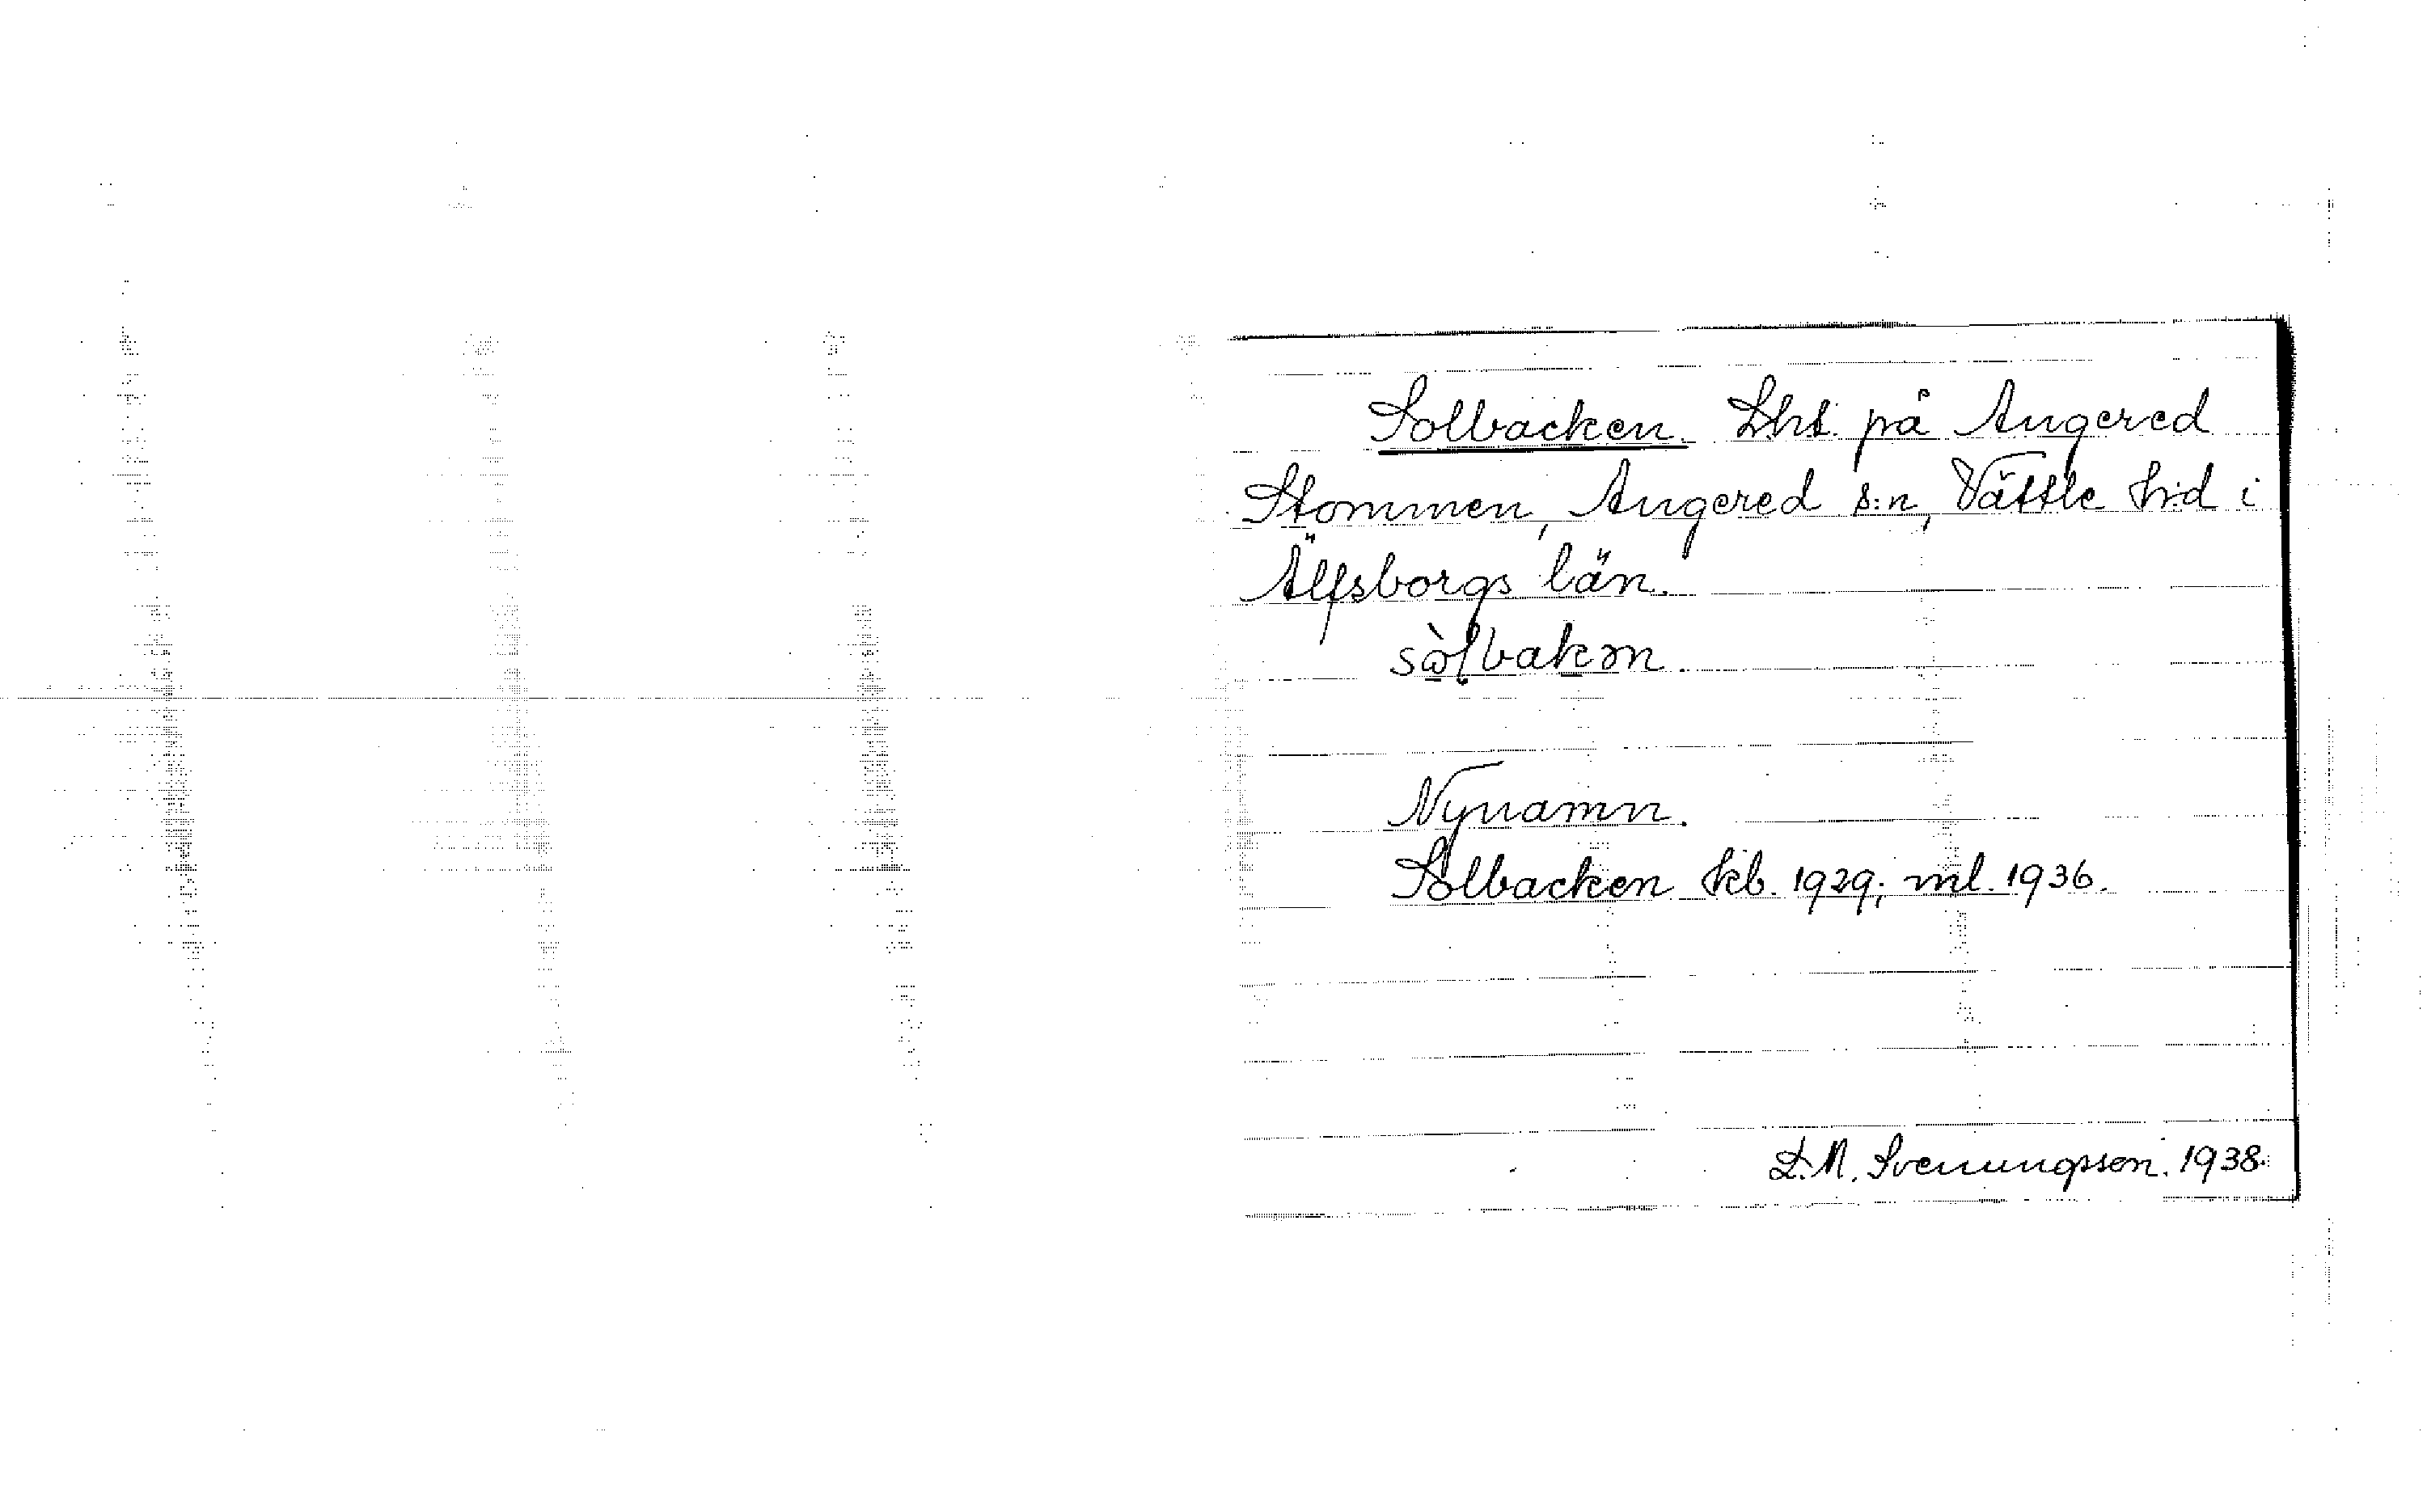 Solbacken. Lht. på Angered
Stommen, Angered s:n, Vättle h:d i
Älfsborgs län.
sòlbakən.
Nynamn.
Solbacken kb. 1929; ml. 1936.
S. M. Svenungsson. 1938.